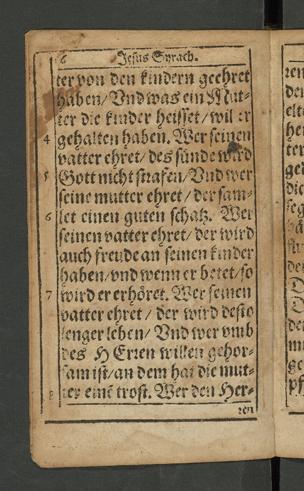 6 Jesus Syrach.
ter von den kindern geehret
haben/ Vnd was ein Mut-
ter die kinder heisset/ wil er
4 gehalten haben. Wer seinen
vatter ehret/ des sünde wird
5 Gott nicht strafen/ Vnd wer
seine mutter ehret/ der sam-
6 let einen guten schatz. Wer
seinen vatter ehret/ der wird
auch freude an seinen kinder
haben/ vnd wenn er betet/ so
7 wird er erhöret. Wer seinen
vatter ehret/ der wird desto
lenger leben/ Vnd wer vmb
des HErren willen gehor-
sam ist/ an dem hat die mut-
8 ter einē trost. Wer den Her-
ren